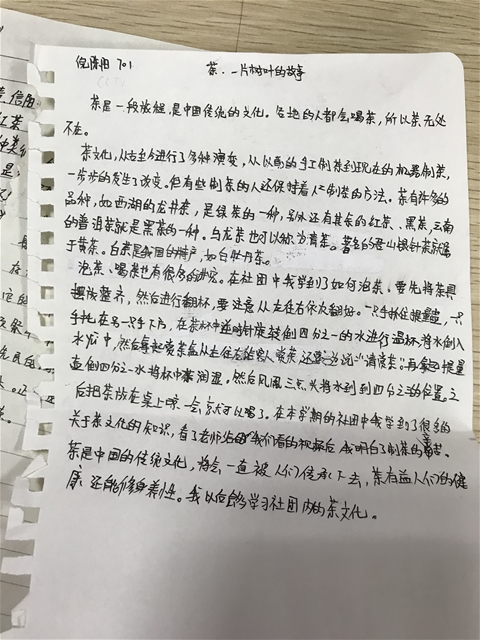 倪陈阳 701 茶:一片树叶的故事
茶是一段旅程,是中国传统的文化。各地的人都会喝茶,所以茶无处
不在。
茶文化,从古至今进行了多种演变,从以前的手工制茶到现在的机器制茶,
一步步的发生了改变。但有些制茶的人还保持着人工制茶的方法。茶有许多的
品种,如西湖的龙井茶,是绿茶的一种,另外还有其茶的红茶、黑茶,云南
的普洱茶就是黑茶的一种。乌龙茶也可以称为青茶。著名的君山银针茶就属
于黄茶。白茶是我国的特产,如白牡丹茶。
泡茶、喝茶也有很多的讲究。在社团中我学到了如何泡茶。要先将茶具
摆放整齐,然后进行翻杯,要注意从左往右依次翻好。一只手抓住提壶,一只
手托在另一只手下方,在茶杯中逆时针旋转倒四分之一的水进行温杯,将水倒入
水盂中,然后每赏茶盒从左往右给客人赏茶,还要说"请赏茶"。再拿起提壶
壶倒四分之一水将杯中茶润湿。然后凤凰三点头将水到到四分之三的位置。之
后把茶放在桌上晾一会,就可以喝了。在本学期的社团中我学到了很多的
关于茶文化的知识,看了老师给我们看的视频后,我明白了制茶的辛苦。
茶是中国的传统文化,将会一直被人们传承下去,茶有益人们的健
康,还能修身养性。我以后会多学习社团内的茶文化。